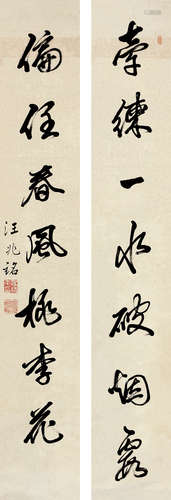 牽練一水破烟霞
偏住春風桃李花
汪兆銘